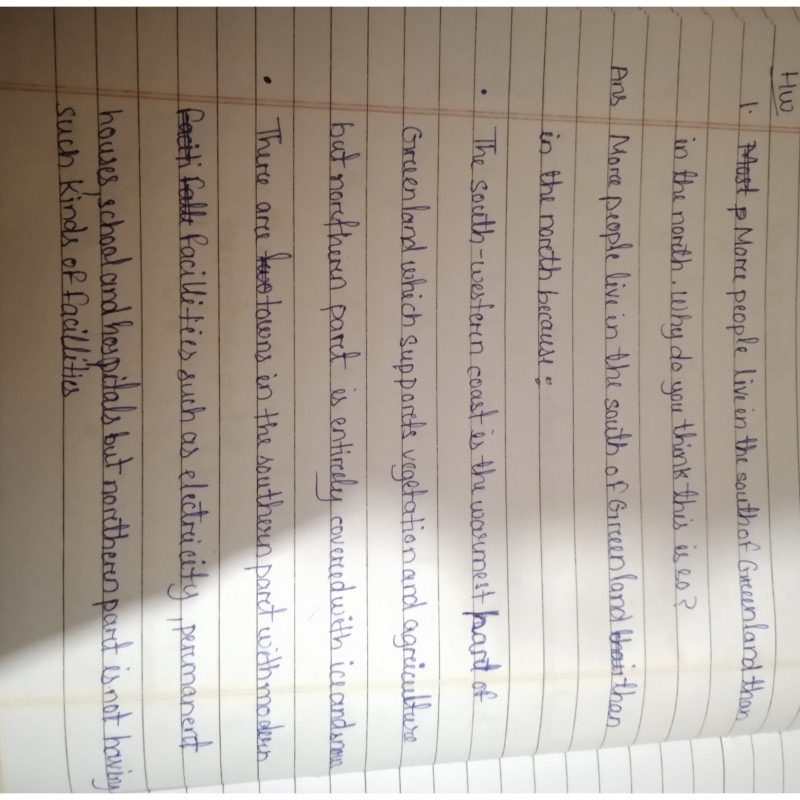 HW
1. More people live in the south of Greenland than
in the north. Why do you think this is so?
Ans More people live in the south of Greenland than
in the north because:
• The south-western coast is the warmest part of
Greenland which supports vegetation and agriculture
but northern part is entirely covered with ice and snow
• There are towns in the southern part with modern
facillities such as electricity, permanent
houses, school and hospitals but northern part is not having
such kinds of facillities